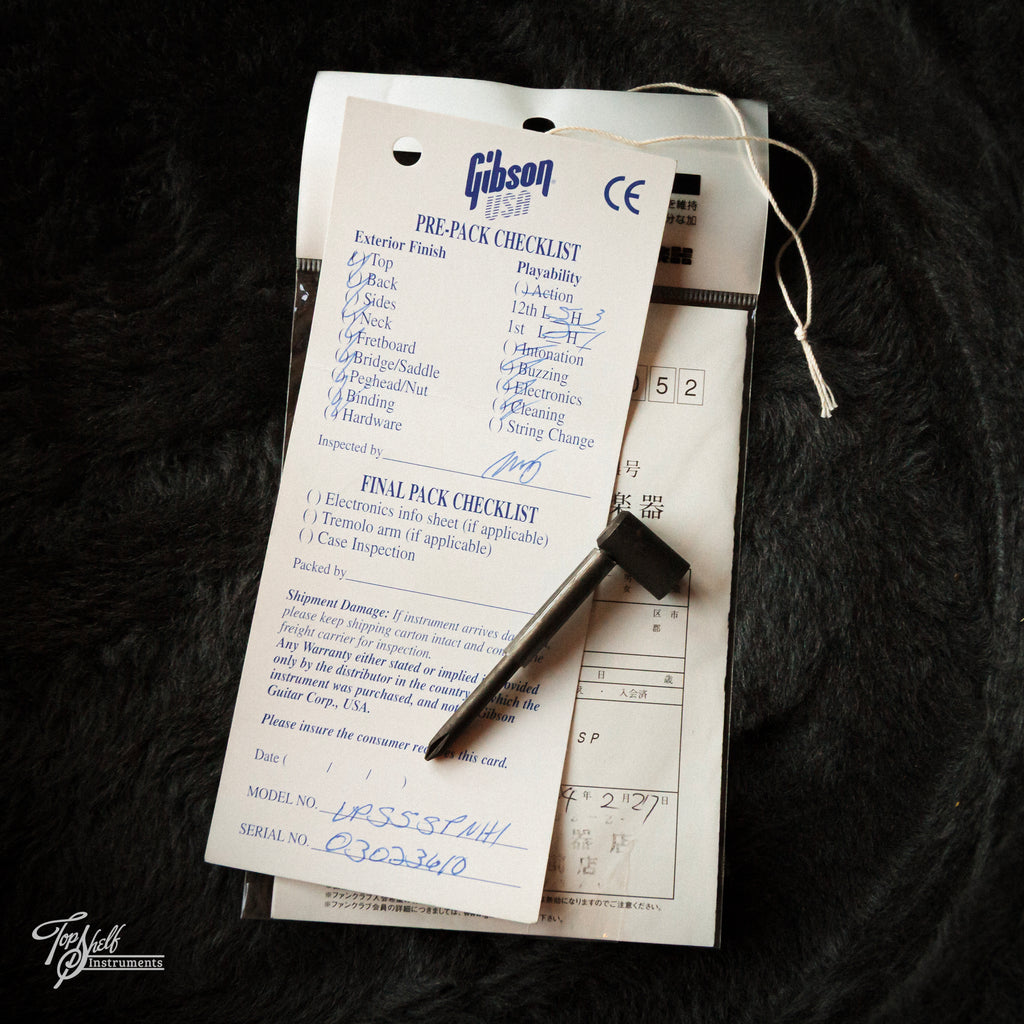 Gibson
USA
CE
PRE-PACK CHECKLIST
Exterior Finish
( ) Top
( ) Back
( ) Sides
( ) Neck
( ) Fretboard
( ) Bridge/Saddle
( ) Peghead/Nut
( ) Binding
( ) Hardware
Playability
( ) Action
12th L 5 H 3
1st L H 1
( ) Intonation
( ) Buzzing
( ) Electronics
( ) Cleaning
( ) String Change
Inspected by
FINAL PACK CHECKLIST
( ) Electronics info sheet (if applicable)
( ) Tremolo arm (if applicable)
( ) Case Inspection
Packed by
Shipment Damage: If instrument arrives da
please keep shipping carton intact and con
freight carrier for inspection.
Any Warranty either stated or implied is provided
only by the distributor in the country which the
instrument was purchased, and not Gibson
Guitar Corp., USA.
Please insure the consumer rec es this card.
Date ( / / )
MODEL NO. LPSSSPNH1
SERIAL NO. 03023610
を維持
分な加
52
号
楽器
男
女
区市
郡
日 歳
・ 入会済
SP
4年2月27日
器 店
店
無効になりますのでご注意ください。
※ファンクラブ会員の詳細につきましては、
下さい。
Top Shelf
Instruments